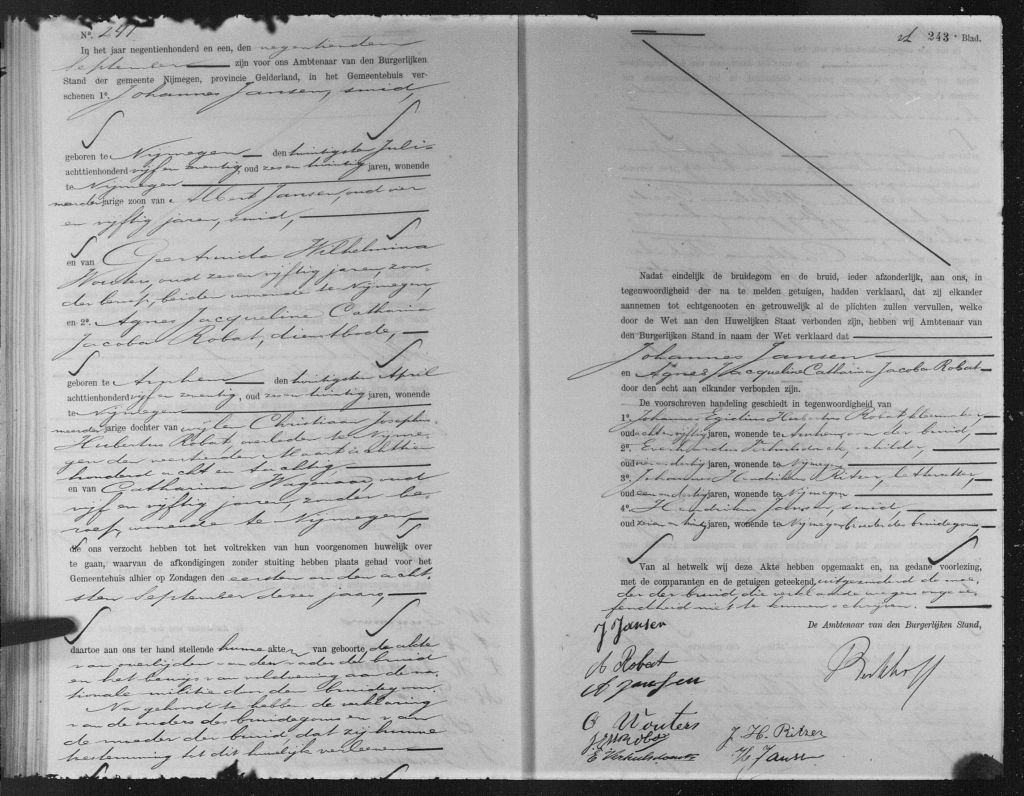 No. 297.
In het jaar negentienhonderd en een, den negentienden
September zijn voor ons Ambtenaar van den Burgerlijken
Stand der gemeente Nijmegen, provincie Gelderland, in het Gemeentehuis ver-
schenen 1o. Johannes Jansen, smid,
geboren te Nijmegen den twintigsten Juli
achttienhonderd vijf en zeventig, oud zes en twintig jaren, wonende
te Nijmegen
meerderjarige zoon van Albert Jansen, oud vier
en vijftig jaren, smid,
en van Geertruida Wilhelmina
Wouters, oud zeven en vijftig jaren, zon-
der beroep, beiden wonende te Nijmegen,
en 2o. Agnes Jacqueline Catharina
Jacoba Robat, dienstbode,
geboren te Arnhem den twintigsten April
achttienhonderd vijf en zeventig, oud zes en twintig jaren, wonende
te Nijmegen
meerderjarige dochter van wijlen Christiaan Josephus
Hubertus Robat, overleden te Nijme-
gen den veertienden Maart achttien-
honderd acht en tachtig,
en van Catharina oud
vijf en vijftig jaren, zonder be-
roep, wonende te Nijmegen,
die ons verzocht hebben tot het voltrekken van hun voorgenomen huwelijk over
te gaan, waarvan de afkondigingen zonder stuiting hebben plaats gehad voor het
Gemeentehuis alhier op Zondagen den eersten en den acht-
sten September dezes jaars,
daartoe aan ons ter hand stellende hunne akten van geboorte, de akte
van overlijden van den vader der bruid
en het bewijs van voldoening aan de na-
tionale militie door den bruidegom.
Na gehoord te hebben de verklaring
van de ouders des bruidegoms en van
de moeder der bruid, dat zij hunne
toestemming tot dit huwelijk verleenen
243 Blad.
Nadat eindelijk de bruidegom en de bruid, ieder afzonderlijk, aan ons, in
tegenwoordigheid der na te melden getuigen, hadden verklaard, dat zij elkander
aannemen tot echtgenooten en getrouwelijk al de plichten zullen vervullen, welke
door de Wet aan den Huwelijken Staat verbonden zijn, hebben wij Ambtenaar van
den Burgerlijken Stand in naam der Wet verklaard dat
Johannes Jansen
en Agnes Jacqueline Catharina Jacoba Robat
door den echt aan elkander verbonden zijn.
De voorschreven handeling geschiedt in tegenwoordigheid van
1o. Johannes Egidius Hubertus Robat,
oud acht en vijftig jaren, wonende te Arnhem, oom der bruid,
2o. Everhardus schilder,
oud dertig jaren, wonende te Nijmegen
3o. Johannes Hendrikus Ritzer, letterzetter,
oud een en dertig jaren, wonende te Nijmegen
4o. Hendrikus Jansen, smid,
oud twintig jaren, wonende te Nijmegen, broeder des bruidegoms,
Van al hetwelk wij deze Akte hebben opgemaakt en, na gedane voorlezing,
met de comparanten en de getuigen geteekend, uitgezonderd de moe-
der der bruid, die verklaarde wegens ongeoe-
fendheid niet te kunnen schrijven.
De Ambtenaar van den Burgerlijken Stand,
J Jansen
A Robat
A Jansen
G Wouters
J. H. Ritzer
H Jansen